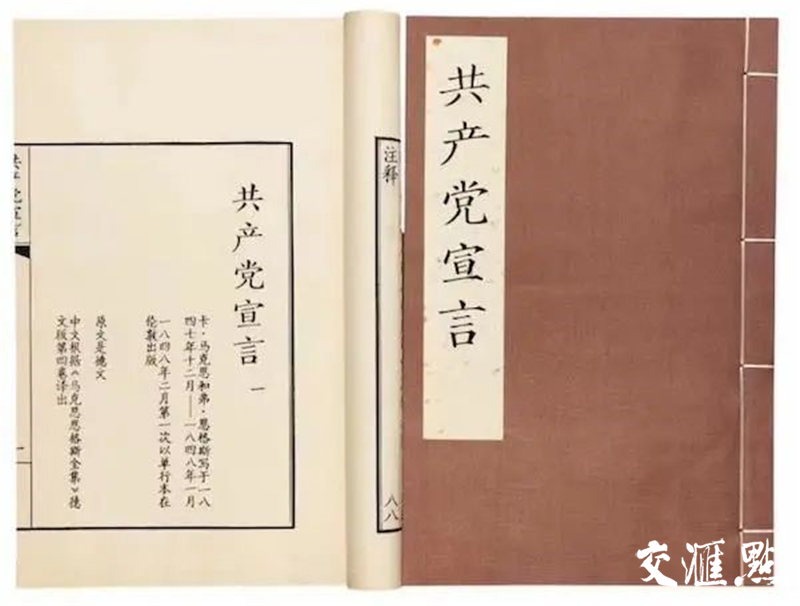 共产党宣言
注释
八八
共产党宣言 一
卡·马克思和弗·恩格斯写于一八
四七年十二月——一八四八年一月
一八四八年二月第一次以单行本在
伦敦出版
原文是德文
中文根据《马克思恩格斯全集》德
文版第四卷译出
共产党宣言
一
交滙點